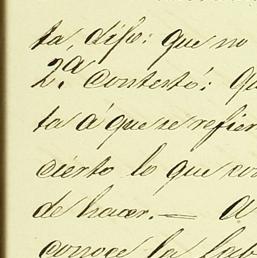 ta, dijo: que no
2.ª Contestó: Qu
ta á que se refier
cierto lo que con
de hacer. — A
conoce la fab